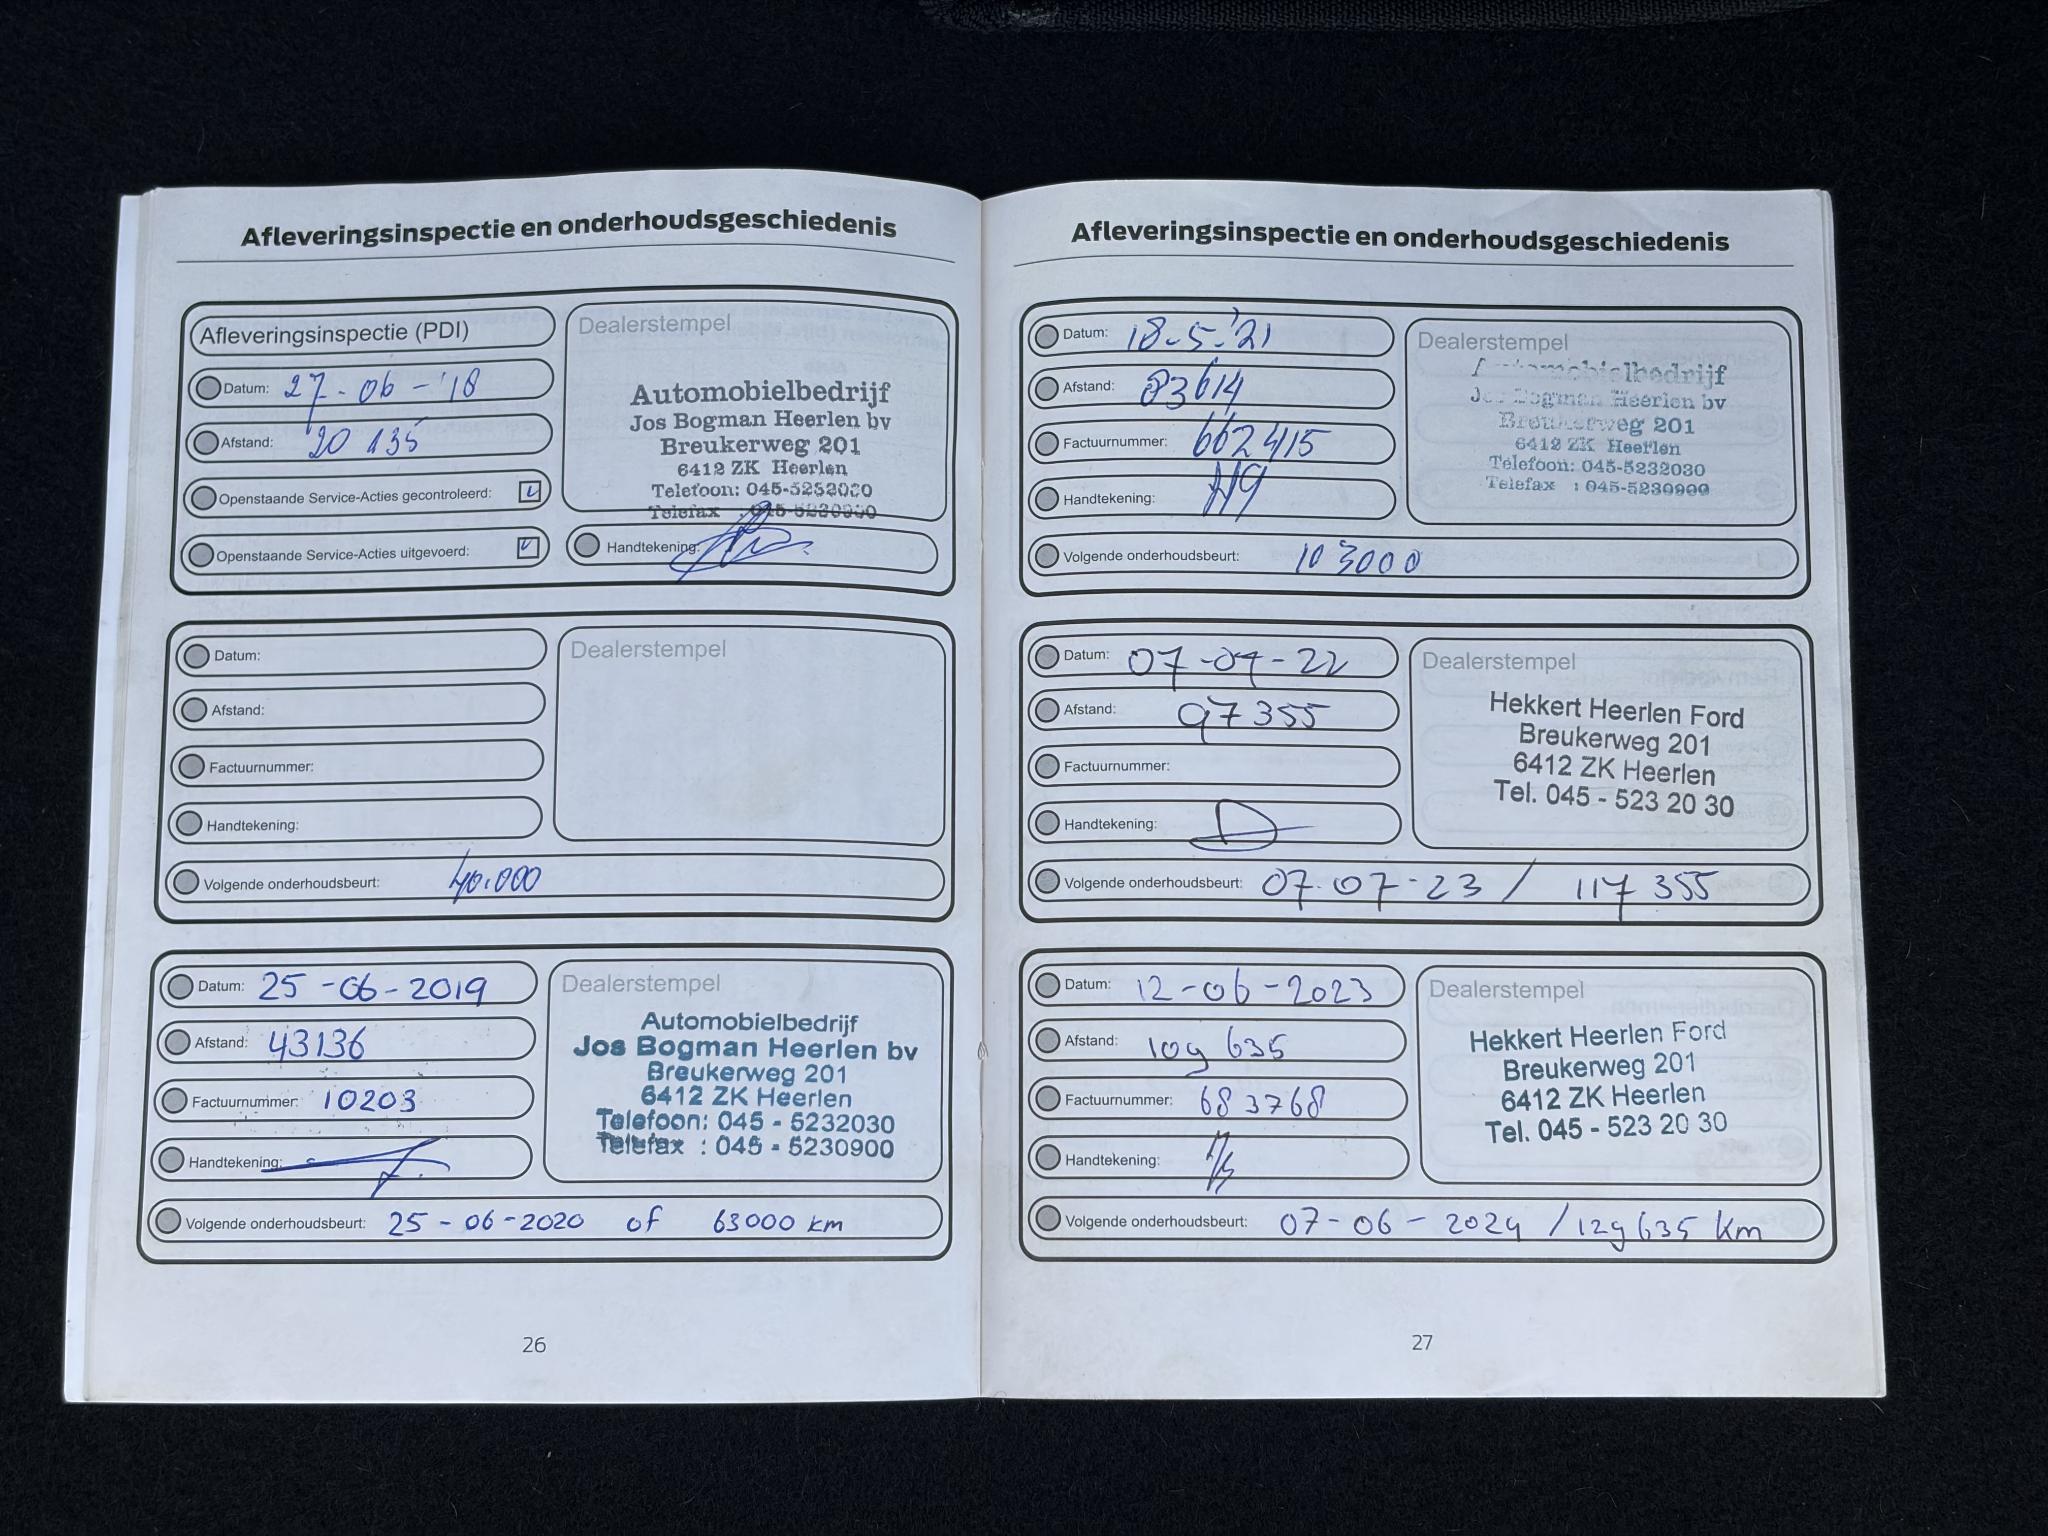 Afleveringsinspectie en onderhoudsgeschiedenis
Afleveringsinspectie (PDI)
Datum: 27-06-'18
Afstand: 20 135
Openstaande Service-Acties gecontroleerd:
Openstaande Service-Acties uitgevoerd:
Dealerstempel
Automobielbedrijf
Jos Bogman Heerlen bv
Breukerweg 201
6412 ZK Heerlen
Telefoon: 045-5232030
Telefax : 045-5230900
Handtekening:
Datum:
Afstand:
Factuurnummer:
Handtekening:
Dealerstempel
Volgende onderhoudsbeurt: 40.000
Datum: 25-06-2019
Afstand: 43136
Factuurnummer: 10203
Handtekening:
Dealerstempel
Automobielbedrijf
Jos Bogman Heerlen bv
Breukerweg 201
6412 ZK Heerlen
Telefoon: 045 - 5232030
Telefax : 045 - 5230900
Volgende onderhoudsbeurt: 25-06-2020 of 63000 km
26
Afleveringsinspectie en onderhoudsgeschiedenis
Datum: 18-5-'21
Afstand: 83614
Factuurnummer: 662415
Handtekening:
Dealerstempel
Automobielbedrijf
Jos Bogman Heerlen bv
Breukerweg 201
6412 ZK Heerlen
Telefoon: 045-5232030
Telefax : 045-5230900
Volgende onderhoudsbeurt: 103000
Datum: 07-07-22
Afstand: 97355
Factuurnummer:
Handtekening:
Dealerstempel
Hekkert Heerlen Ford
Breukerweg 201
6412 ZK Heerlen
Tel. 045 - 523 20 30
Volgende onderhoudsbeurt: 07-07-23 / 117 355
Datum: 12-06-2023
Afstand: 109 635
Factuurnummer: 683768
Handtekening:
Dealerstempel
Hekkert Heerlen Ford
Breukerweg 201
6412 ZK Heerlen
Tel. 045 - 523 20 30
Volgende onderhoudsbeurt: 07-06-2024 / 129635 km
27